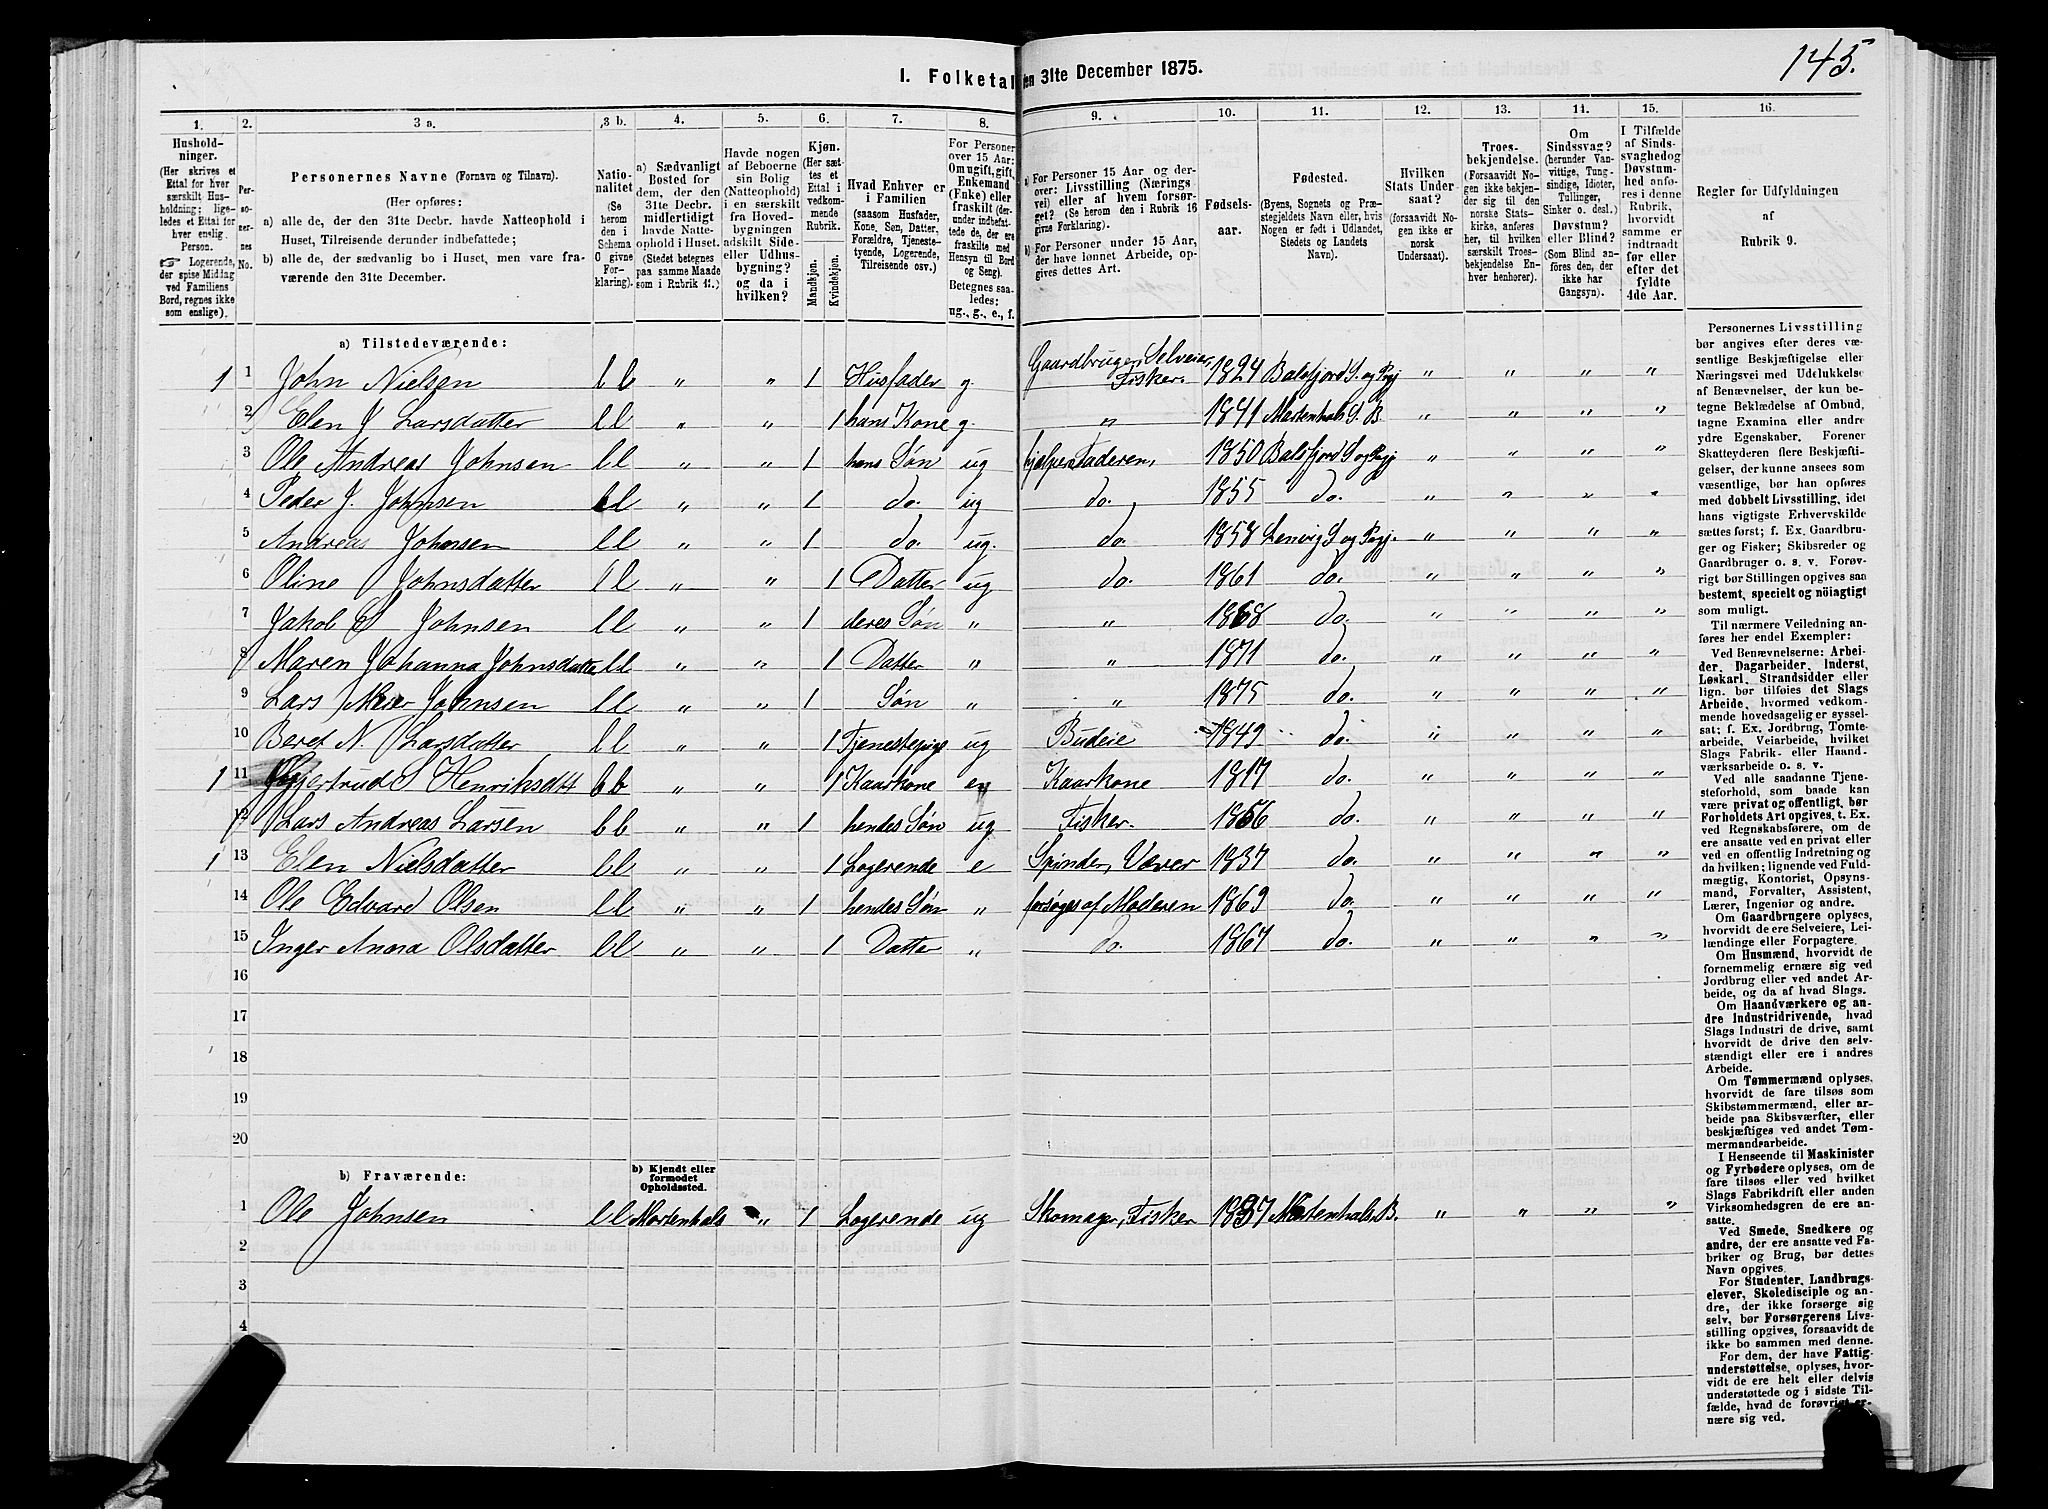 145.
I. Folketal den 31te December 1875.
1. 2. 3 a. 3 b. 4. 5. 6. 7. 8. 9. 10. 11. 12. 13. 14. 15. 16.
Hushold-
ninger.
(Her skrives et
Ettal for hver
særskilt Hus-
holdning; lige-
ledes et Ettal for
hver enslig
Person.
☞ Logerende,
der spise Middag
ved Familiens
Bord, regnes ikke
som enslige).
Per-
so-
ner-
nes
No.
Personernes Navne (Fornavn og Tilnavn).
(Her opføres:
a) alle de, der den 31te Decbr. havde Natteophold i
Huset, Tilreisende derunder indbefattede;
b) alle de, der sædvanlig bo i Huset, men vare fra-
værende den 31te December.
Natio-
nalitet
(Se
herom
den i
Schema
O givne
For-
klaring).
a) Sædvanligt
Bosted for
dem, der den
31te Decbr.
midlertidigt
havde Natte-
ophold i Huset.
(Stedet betegnes
paa samme Maade
som i Rubrik 11.)
Havde nogen
af Beboerne
sin Bolig
(Natteophold)
i en særskilt
fra Hoved-
bygningen
adskilt Side-
eller Udhus-
bygning?
og da i
hvilken?
Kjøn.
(Her sæt-
tes et
Ettal i
vedkom-
mende
Rubrik.
Mandkjøn.
Kvindekjøn.
Hvad Enhver er
i Familien
(saasom Husfader,
Kone, Søn, Datter,
Forældre, Tjeneste-
tyende, Logerende,
Tilreisende osv.)
For Personer
over 15 Aar:
Om ugift, gift,
Enkemand
(Enke) eller
fraskilt (der-
under indbefat-
tede de, der ere
fraskilte med
Hensyn til Bord
og Seng).
Betegnes saa-
ledes:
ug., g., e., f.
a) For Personer 15 Aar og der-
over: Livsstilling (Nærings-
vei) eller af hvem forsør-
get? (Se herom den i Rubrik 16
givne Forklaring).
b) For Personer under 15 Aar,
der have lønnet Arbeide, op-
gives dettes Art.
Fødsels-
aar.
Fødested.
(Byens, Sognets og Præ-
stegjeldets Navn eller, hvis
Nogen er født i Udlandet,
Stedets og Landets
Navn).
Hvilken
Stats Under-
saat?
(forsaavidt No-
gen ikke er
norsk
Undersaat).
Troes-
bekjendelse.
(Forsaavidt No-
gen ikke bekjen-
der sig til den
norske Stats-
kirke, anføres
her, til hvilken
særskilt Troes-
bekjendelse En-
hver henhører).
Om
Sindssvag?
(herunder Van-
vittige, Tung-
sindige, Idioter,
Tullinger,
Sinker o. desl.)
Døvstum?
eller Blind?
(Som Blind an-
føres den, der
ikke har
Gangsyn).
I Tilfælde
af Sinds-
svaghed og
Døvstum-
hed anfø-
res i denne
Rubrik,
hvorvidt
samme er
indtraadt
før eller
efter det
fyldte
4de Aar.
Regler for Udfyldningen
af
Rubrik 9.
a) Tilstedeværende:
1 1 John Nielsen bb " " 1 Husfader g. Gaardbruger, Selveier, Fisker. 1824 Balsfjord S. og Pgj " " " "
2 Elen J Larsdatter bl " " 1 hans Kone g. " 1841 Mastenhals S. B. " " " "
3 Ole Andreas Johnsen bl " " 1 hans Søn ug hjelper Faderen, 1850 Balsfjord S og Pgj " " " "
4 Peder J. Johnsen bl " " 1 do. ug do. 1855 do. " " " "
5 Andreas Johnsen bl " " 1 do. ug. do. 1858 Lenvig S og Pgj. " " " "
6 Oline Johnsdatter bl " " 1 Datter ug do. 1861 do. " " " "
7 Jakob E Johnsen bl " " 1 deres Søn " " 1868 do. " " " "
8 Maren Johanna Johnsdatte bl " " 1 Datter " " 1871 do. " " " "
9 Lars Meier Johnsen bl " " 1 Søn " " 1875 do. " " " "
10 Beret N. Larsdatter bl " " 1 Tjenestepige ug Budeie 1849 do. " " " "
1 11 Gjertrud S Henriksdtt bb " " 1 Kaarkone e Kaarkone 1817 do. " " " "
12 Lars Andreas Larsen bb " " 1 hendes Søn ug Fisker. 1856 do. " " " "
1 13 Elen Nielsdatter bl " " 1 Logerende e Spinder, Væver 1837 do. " " " "
14 Ole Edvard Olsen bl " " 1 hendes Søn " forsørges af Moderen 1863 do. " " " "
15 Inger Anna Olsdatter bl " " 1 Datte " Do. 1867 do. " " " "
16
17
18
19
20
b) Fraværende:
b) Kjendt eller
formodet
Opholdssted.
1 Ole Johnsen bl Mortenhals " 1 Logerende ug Skomager, Fisker 1837 Mastenhals. B. " " " "
2
3
4
Personernes Livsstilling
bør angives efter deres væ-
sentlige Beskjæftigelse eller
Næringsvei med Udelukkelse
af Benævnelser, der kun be-
tegne Beklædelse af Ombud,
tagne Examina eller andre
ydre Egenskaber. Forener
Skatteyderen flere Beskjæfti-
gelser, der kunne ansees som
væsentlige, bør han opføres
med dobbelt Livsstilling, idet
hans vigtigste Erhvervskilde
sættes først; f. Ex. Gaardbru-
ger og Fisker; Skibsreder og
Gaardbruger o. s. v. Forøv-
rigt bør Stillingen opgives saa
bestemt, specielt og nöiagtigt
som muligt.
Til nærmere Veiledning an-
føres her endel Exempler:
Ved Benævnelserne: Arbei-
der, Dagarbeider, Inderst,
Løskarl, Strandsidder eller
lign. bør tilføies det Slags
Arbeide, hvormed vedkom-
mende hovedsagelig er syssel-
sat; f. Ex. Jordbrug, Tomte-
arbeide, Veiarbeide, hvilket
Slags Fabrik- eller Haand-
værksarbeide o. s. v.
Ved alle saadanne Tjene-
steforhold, som baade kan
være privat og offentligt, bør
Forholdets Art opgives, t. Ex.
ved Regnskabsførere, om de
ere ansatte ved en privat eller
ved en offentlig Indretning og
da hvilken; lignende ved Fuld-
mægtig, Kontorist, Opsyns-
mand, Forvalter, Assistent,
Lærer, Ingeniør og andre.
Om Gaardbrugere oplyses,
hvorvidt de ere Selveiere, Lei-
lændinge eller Forpagtere.
Om Husmænd, hvorvidt de
fornemmelig ernære sig ved
Jordbrug eller ved andet Ar-
beide, og da af hvad Slags.
Om Haandværkere og an-
dre Industridrivende, hvad
Slags Industri de drive, samt
hvorvidt de drive den selv-
stændigt eller ere i andres
Arbeide.
Om Tømmermænd oplyses,
hvorvidt de fare tilsøs som
Skibstømmermænd, eller ar-
beide paa Skibsværfter, eller
beskjæftiges ved andet Tøm-
mermandsarbeide.
I Henseende til Maskinister
og Fyrbødere oplyses, om de
fare tilsøs eller ved hvilket
Slags Fabrikdrift eller anden
Virksomhedsgren de ere an-
satte.
Ved Smede, Snedkere og
andre, der ere ansatte ved Fa-
briker og Brug, bør dettes
Navn opgives.
For Studenter, Landbrugs-
elever, Skoledisciple og an-
dre, der ikke forsørge sig
selv, bør Forsørgerens Livs-
stilling opgives, forsaavidt de
ikke bo sammen med denne.
For dem, der have Fattig-
understøttelse, oplyses, hvor-
vidt de ere helt eller delvis
understøttede og i sidste Til-
fælde, hvad de forøvrigt er-
nære sig ved.